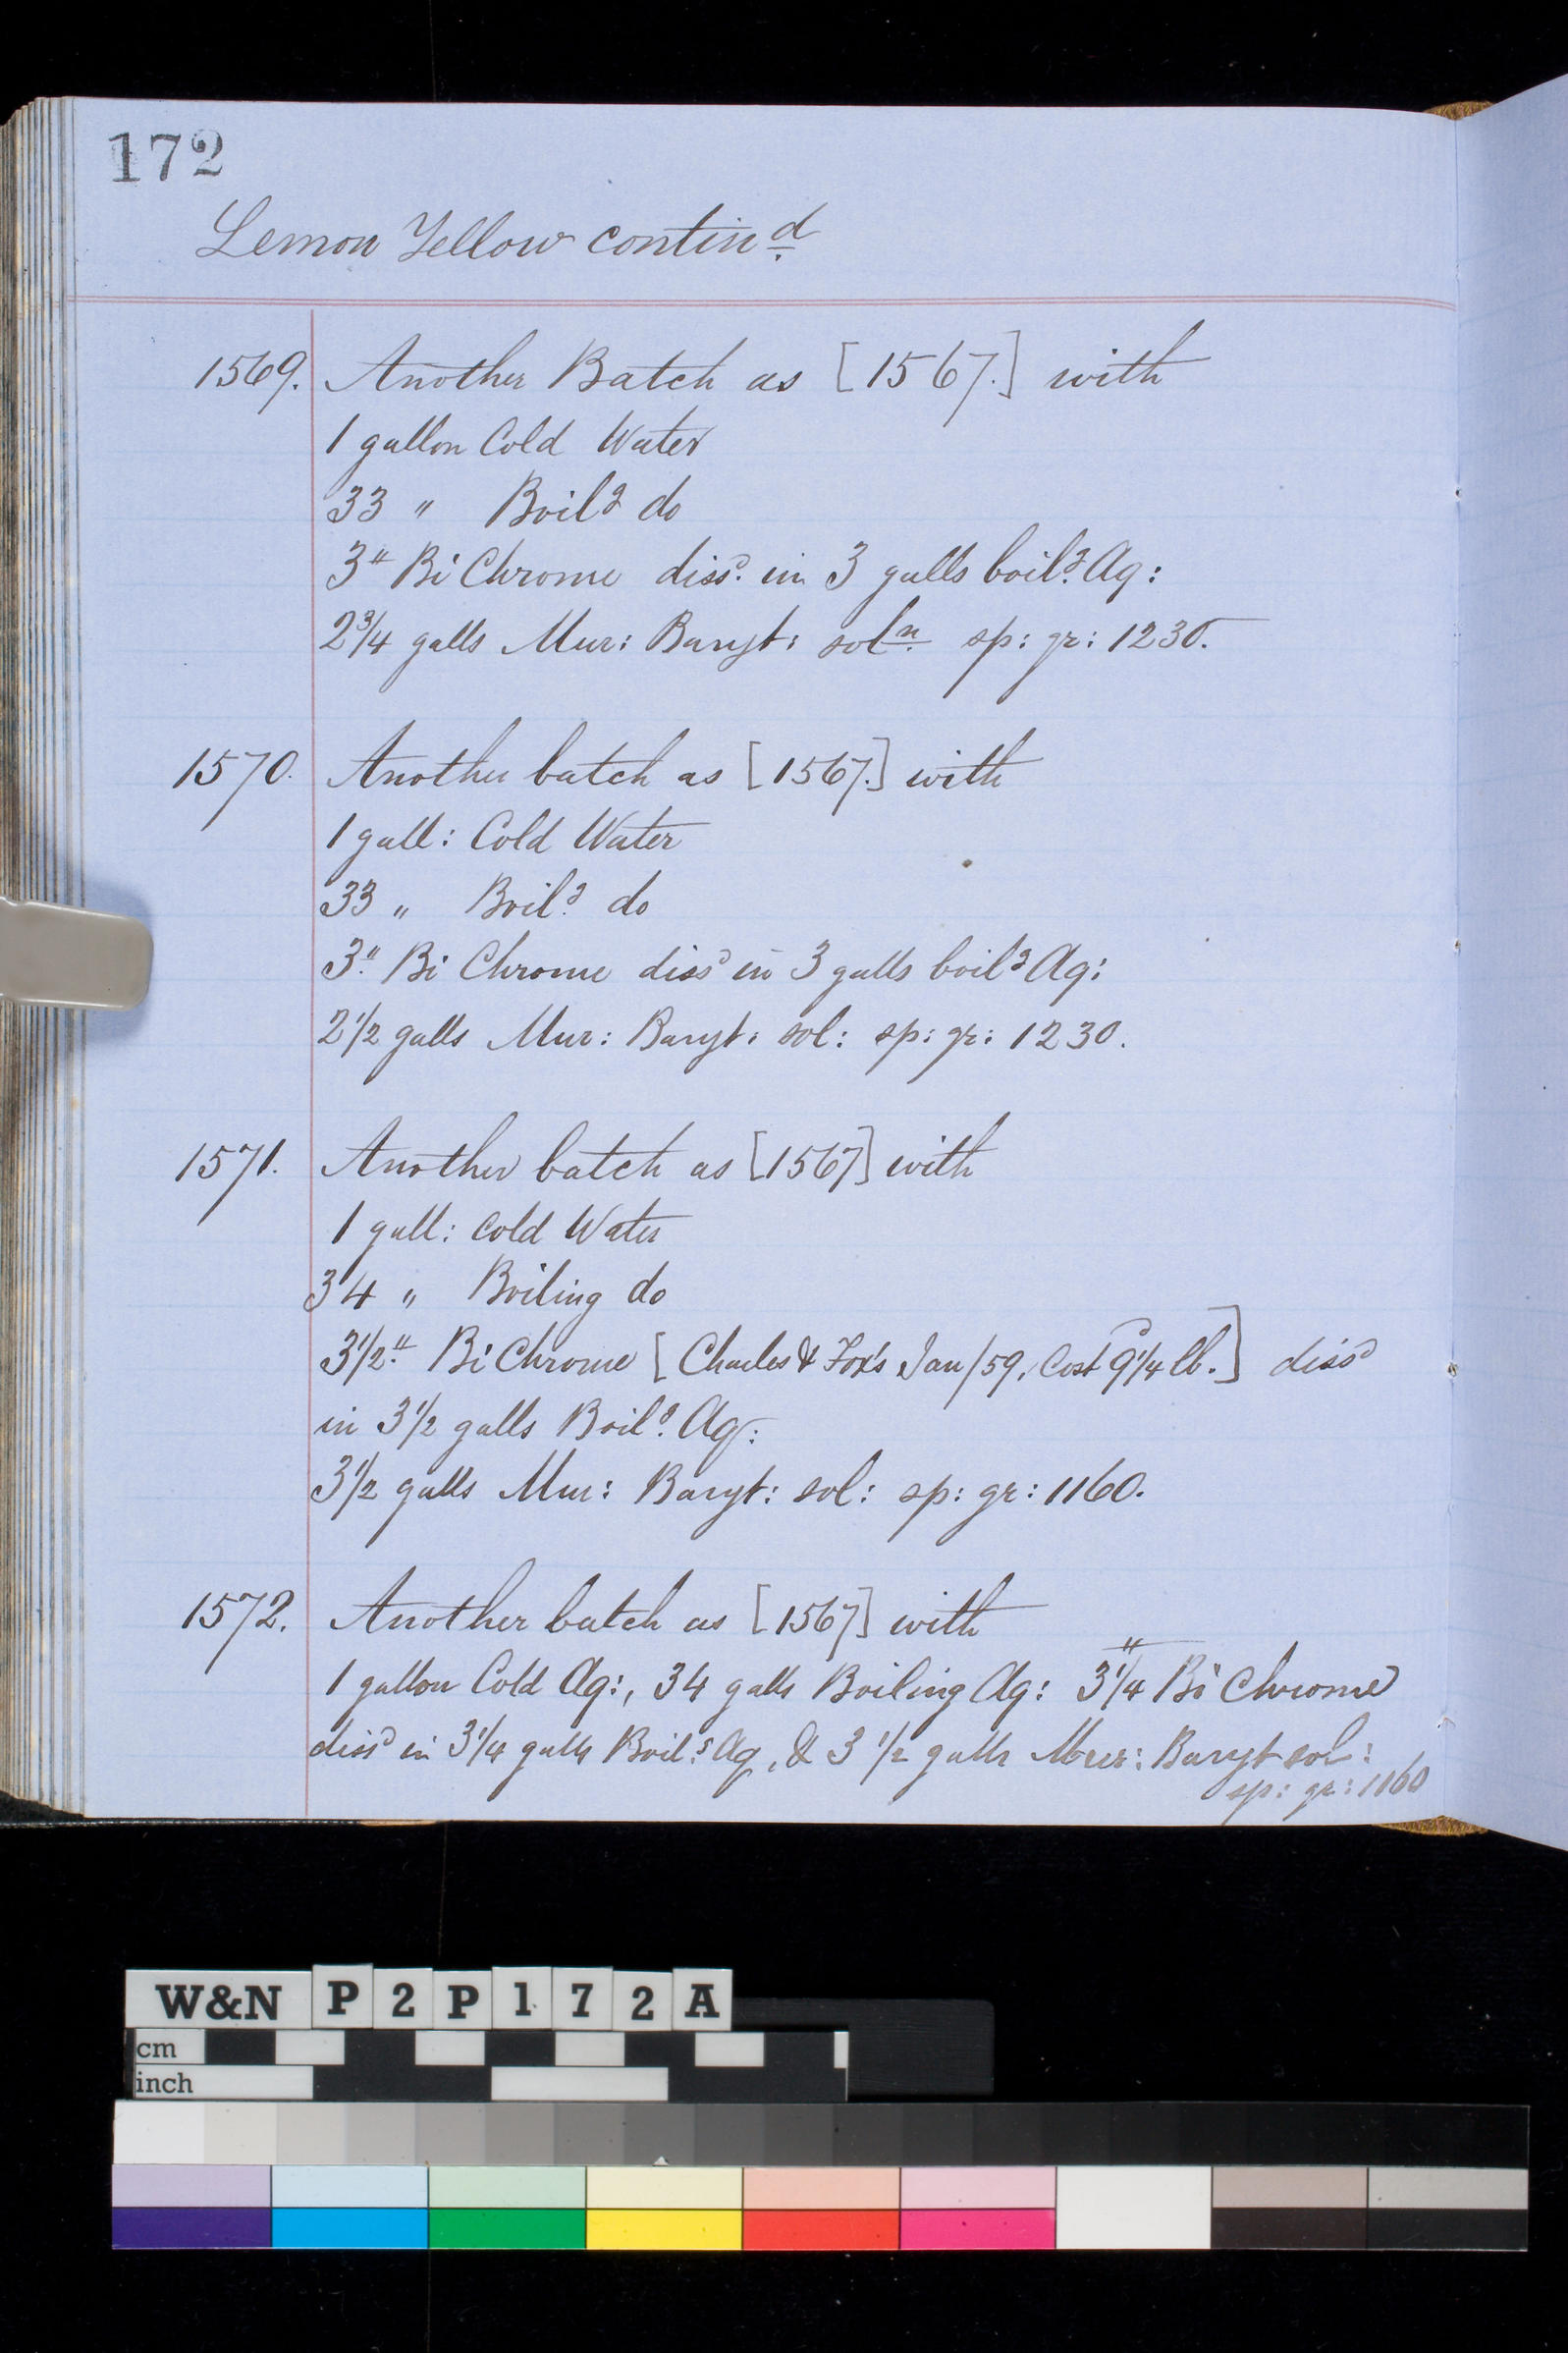 172
Lemon Yellow contind.
1569. Another Batch as [1567.] with
1 gallon Cold Water
33 " Boilg do
3" Bi Chrome dissd. in 3 galls boilg. Aq:
2 3/4 galls Mur: Baryt: soln. sp: gr: 1230.
1570. Another batch as [1567.] with
1 gall: Cold Water
33 " Boilg. do
3." Bi Chrome dissd in 3 galls boilg Aq:
2 1/2 galls Mur: Baryt: sol: sp: gr: 1230.
1571. Another batch as [1567] with
1 gall: Cold Water
34 " Boiling do
3 1/2." Bi Chrome [Charles & Fox's Jan/59, Cost 9 1/4 lb.] dissd
in 3 1/2 galls Boilg. Aq:
3 1/2 galls Mur: Baryt: sol: sp: gr: 1160.
1572. Another batch as [1567] with
1 gallon Cold Aq:, 34 galls Boiling Aq: 3 1/4" Bi Chrome
dissd in 3 1/4 galls Boilg. Aq, & 3 1/2 galls Mur: Baryt sol:
sp: gr: 1160
W&N P2P172A
cm
inch